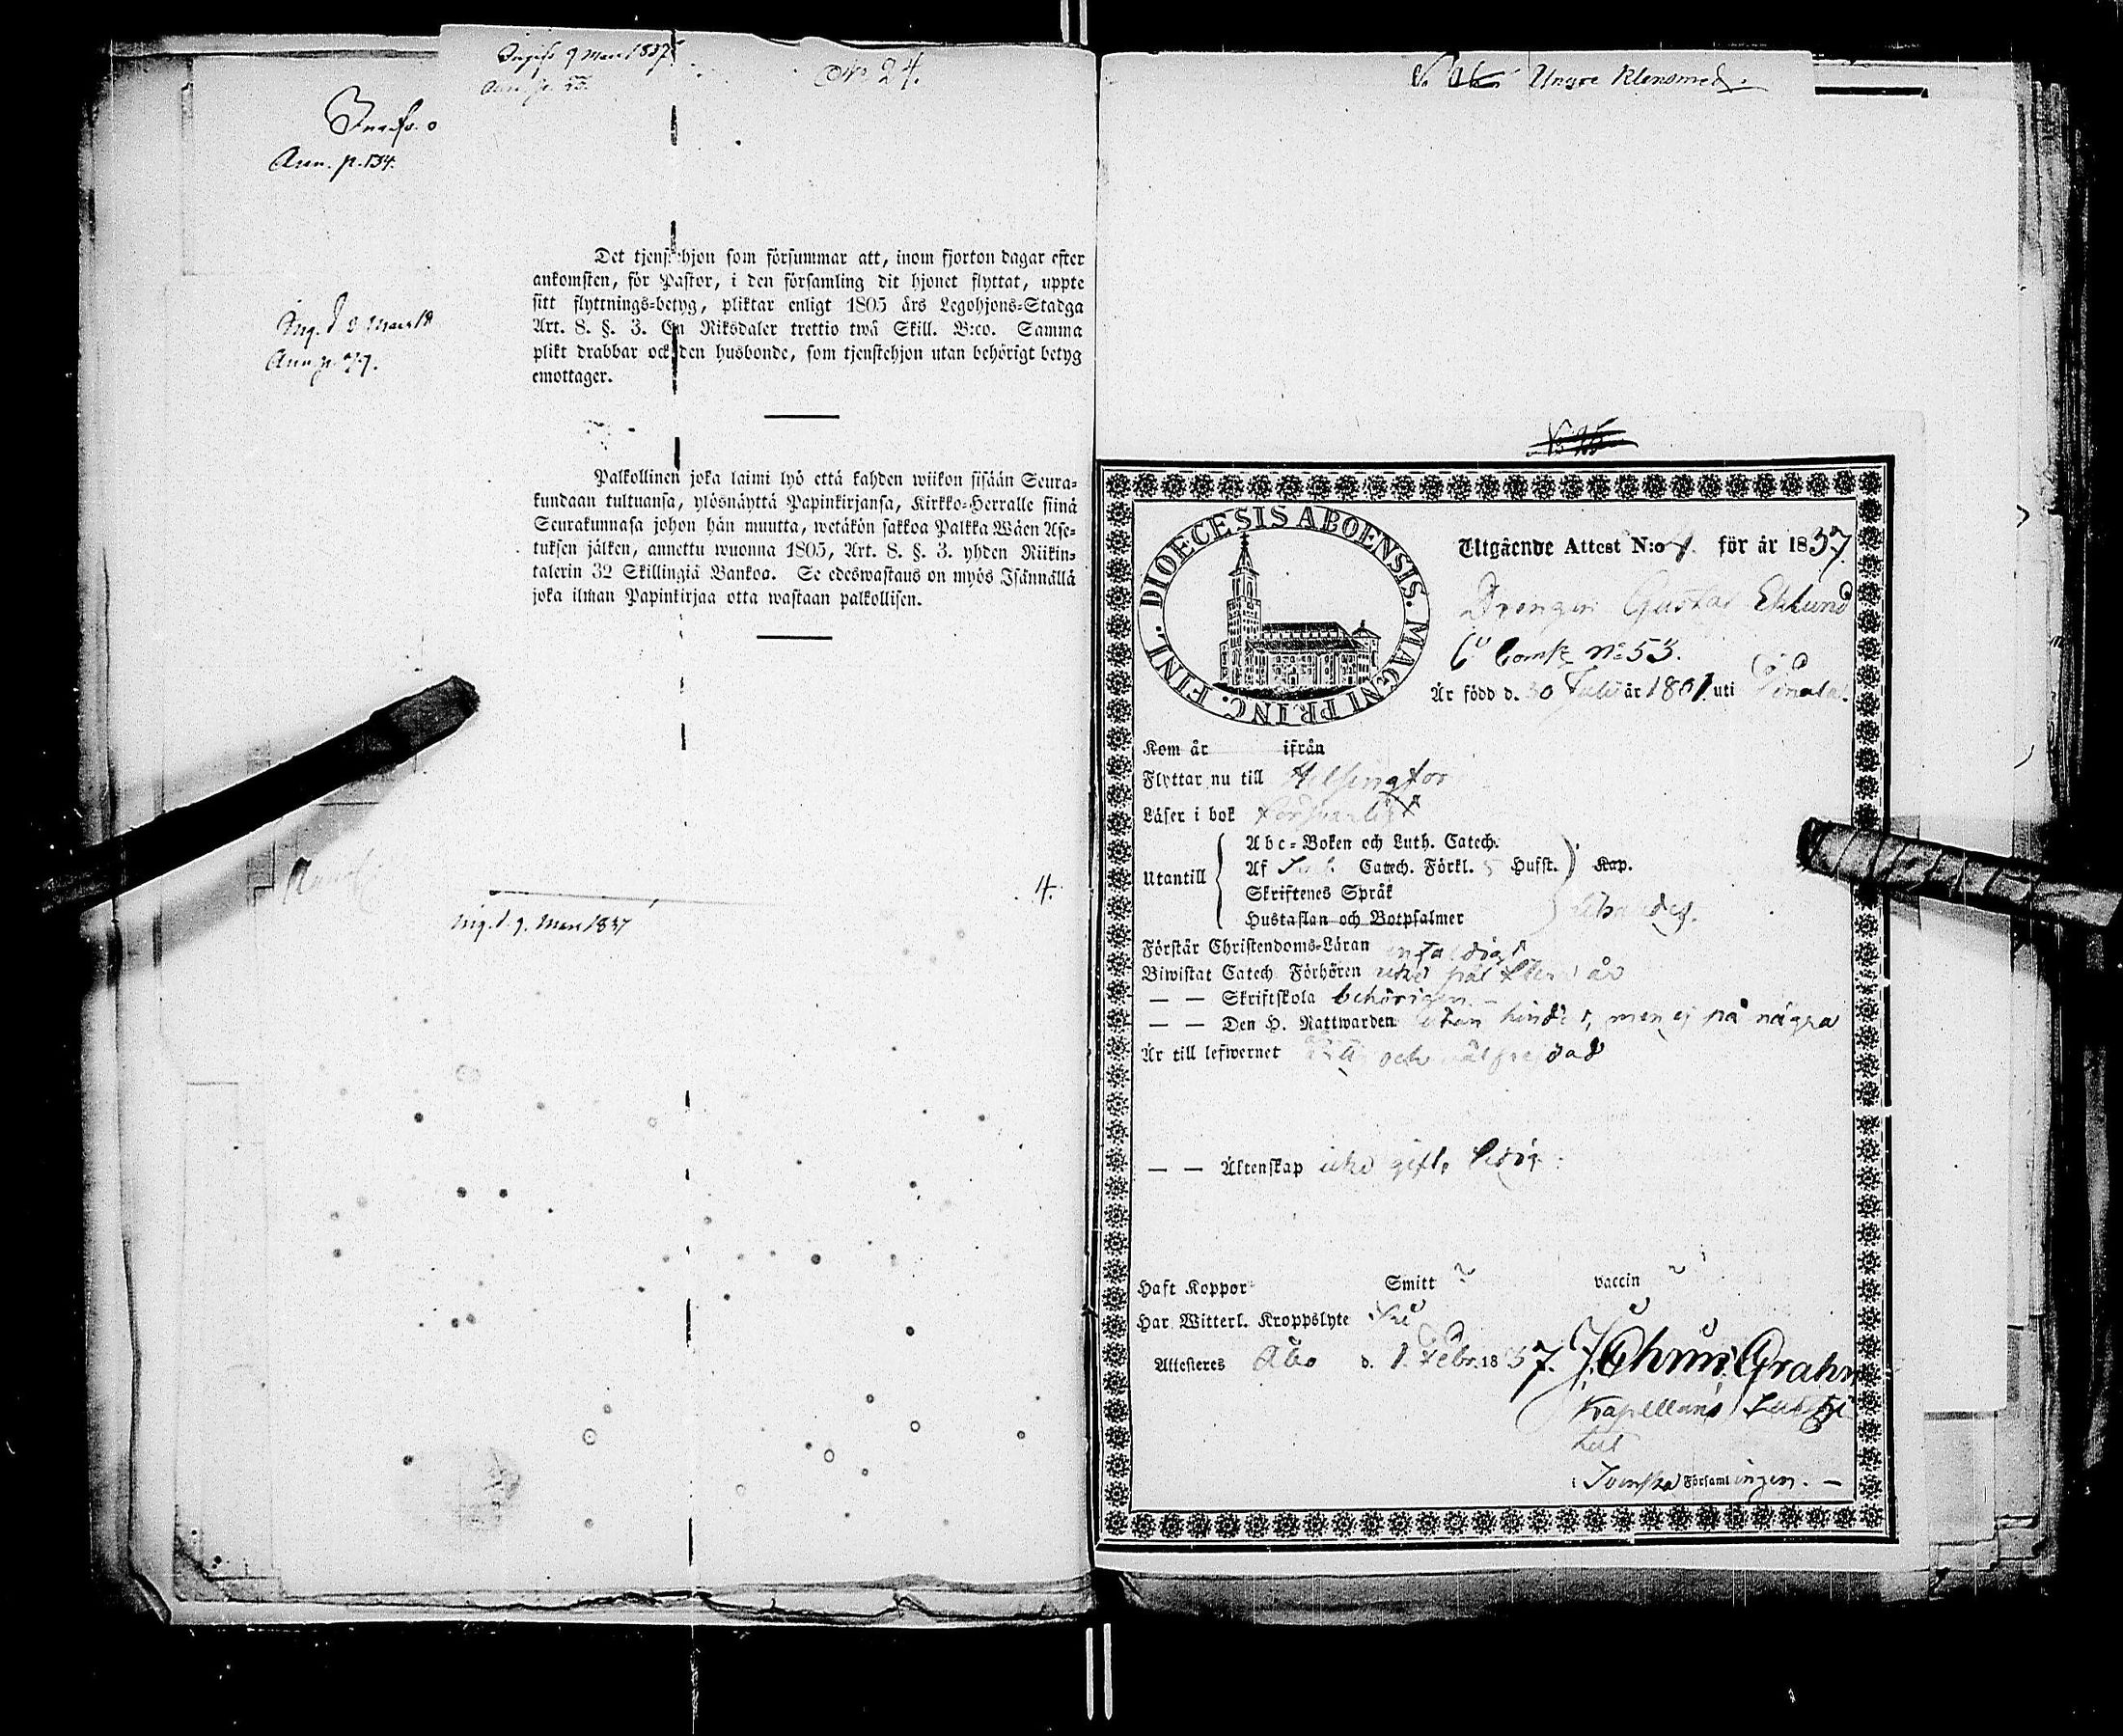 Ingifs 9 Mars 1837
No 24.
Ann. p. 134.
Det tjenstehjon som försummar att, inom fjorton dagar efter
ankomsten, för Pastor, i den församling dit hjonet flyttat, uppte
sitt flyttnings=betyg, pliktar enligt 1805 års Legohjons=Stadga
Art. 8. §. 3. En Riksdaler trettio twå Skill. B:co. Samma
plikt drabbar ock den husbonde, som tjenstehjon utan behörigt betyg
emottager.
Ing. d 8 Mars
Ann. p.
Palkollinen joka laimi lyö että kahden wiikon sisään Seura=
kundaan tultuansa, ylösnäyttä Papinkirjansa, Kirkko=Herralle siinä
Seurakunnasa johon hän muutta, wetäkön sakkoa Palkka Wäen Ase=
tuksen jälken, annettu wuonna 1805, Art. 8. §. 3. yhden Riikin=
talerin 32 Skillingiä Bankoa. Se edeswastaus on myös Isännällä
joka ilman Papinkirjaa otta wastaan palkollisen.
4.
Ing. d. 9. Mars 1837
Yngre Klensmed.
No 26
DIOECESIS ABOENSIS. MAGNI PRINC. FINL.
Utgående Attest N:o för år 1837.
Drengen Gustaf Eklund
Comp. No 53.
Är född d. 30 Julii år 1801. uti
Kom år ifrån
Flyttar nu till Helsingfors
Läser i bok försvarligt
Utantill
Abc=Boken och Luth. Catech.
Af Catech. Förkl. 5 Hufst. Kap.
Skriftenes Språk
Hustaflan och Botpsalmer
Förstår Christendoms=Läran enfaldigt
Biwistat Catech Förhören icke på flera år
— — Skriftskola behörigen.
— — Den H. Nattwarden utan hinder, men ej på några
Är till lefwernet och välfrejdad
— — Äktenskap icke gift, ledig.
Haft Koppor Smitt vaccin
Har Witterl. Kroppslyte
Attesteres Åbo d. 1. Febr. 1837. Grahn
Kapellans Substi
tut
i Svenska Församlingen. —